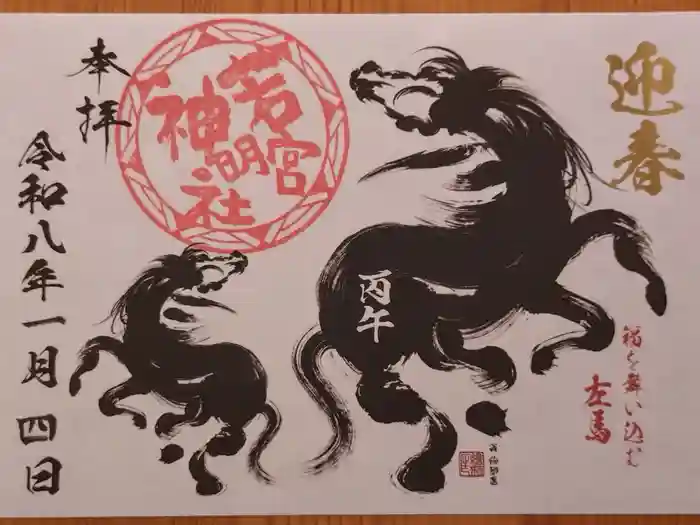 迎春
福を舞い込む
左馬
丙午
若宮
神明社
奉拝
令和八年一月四日